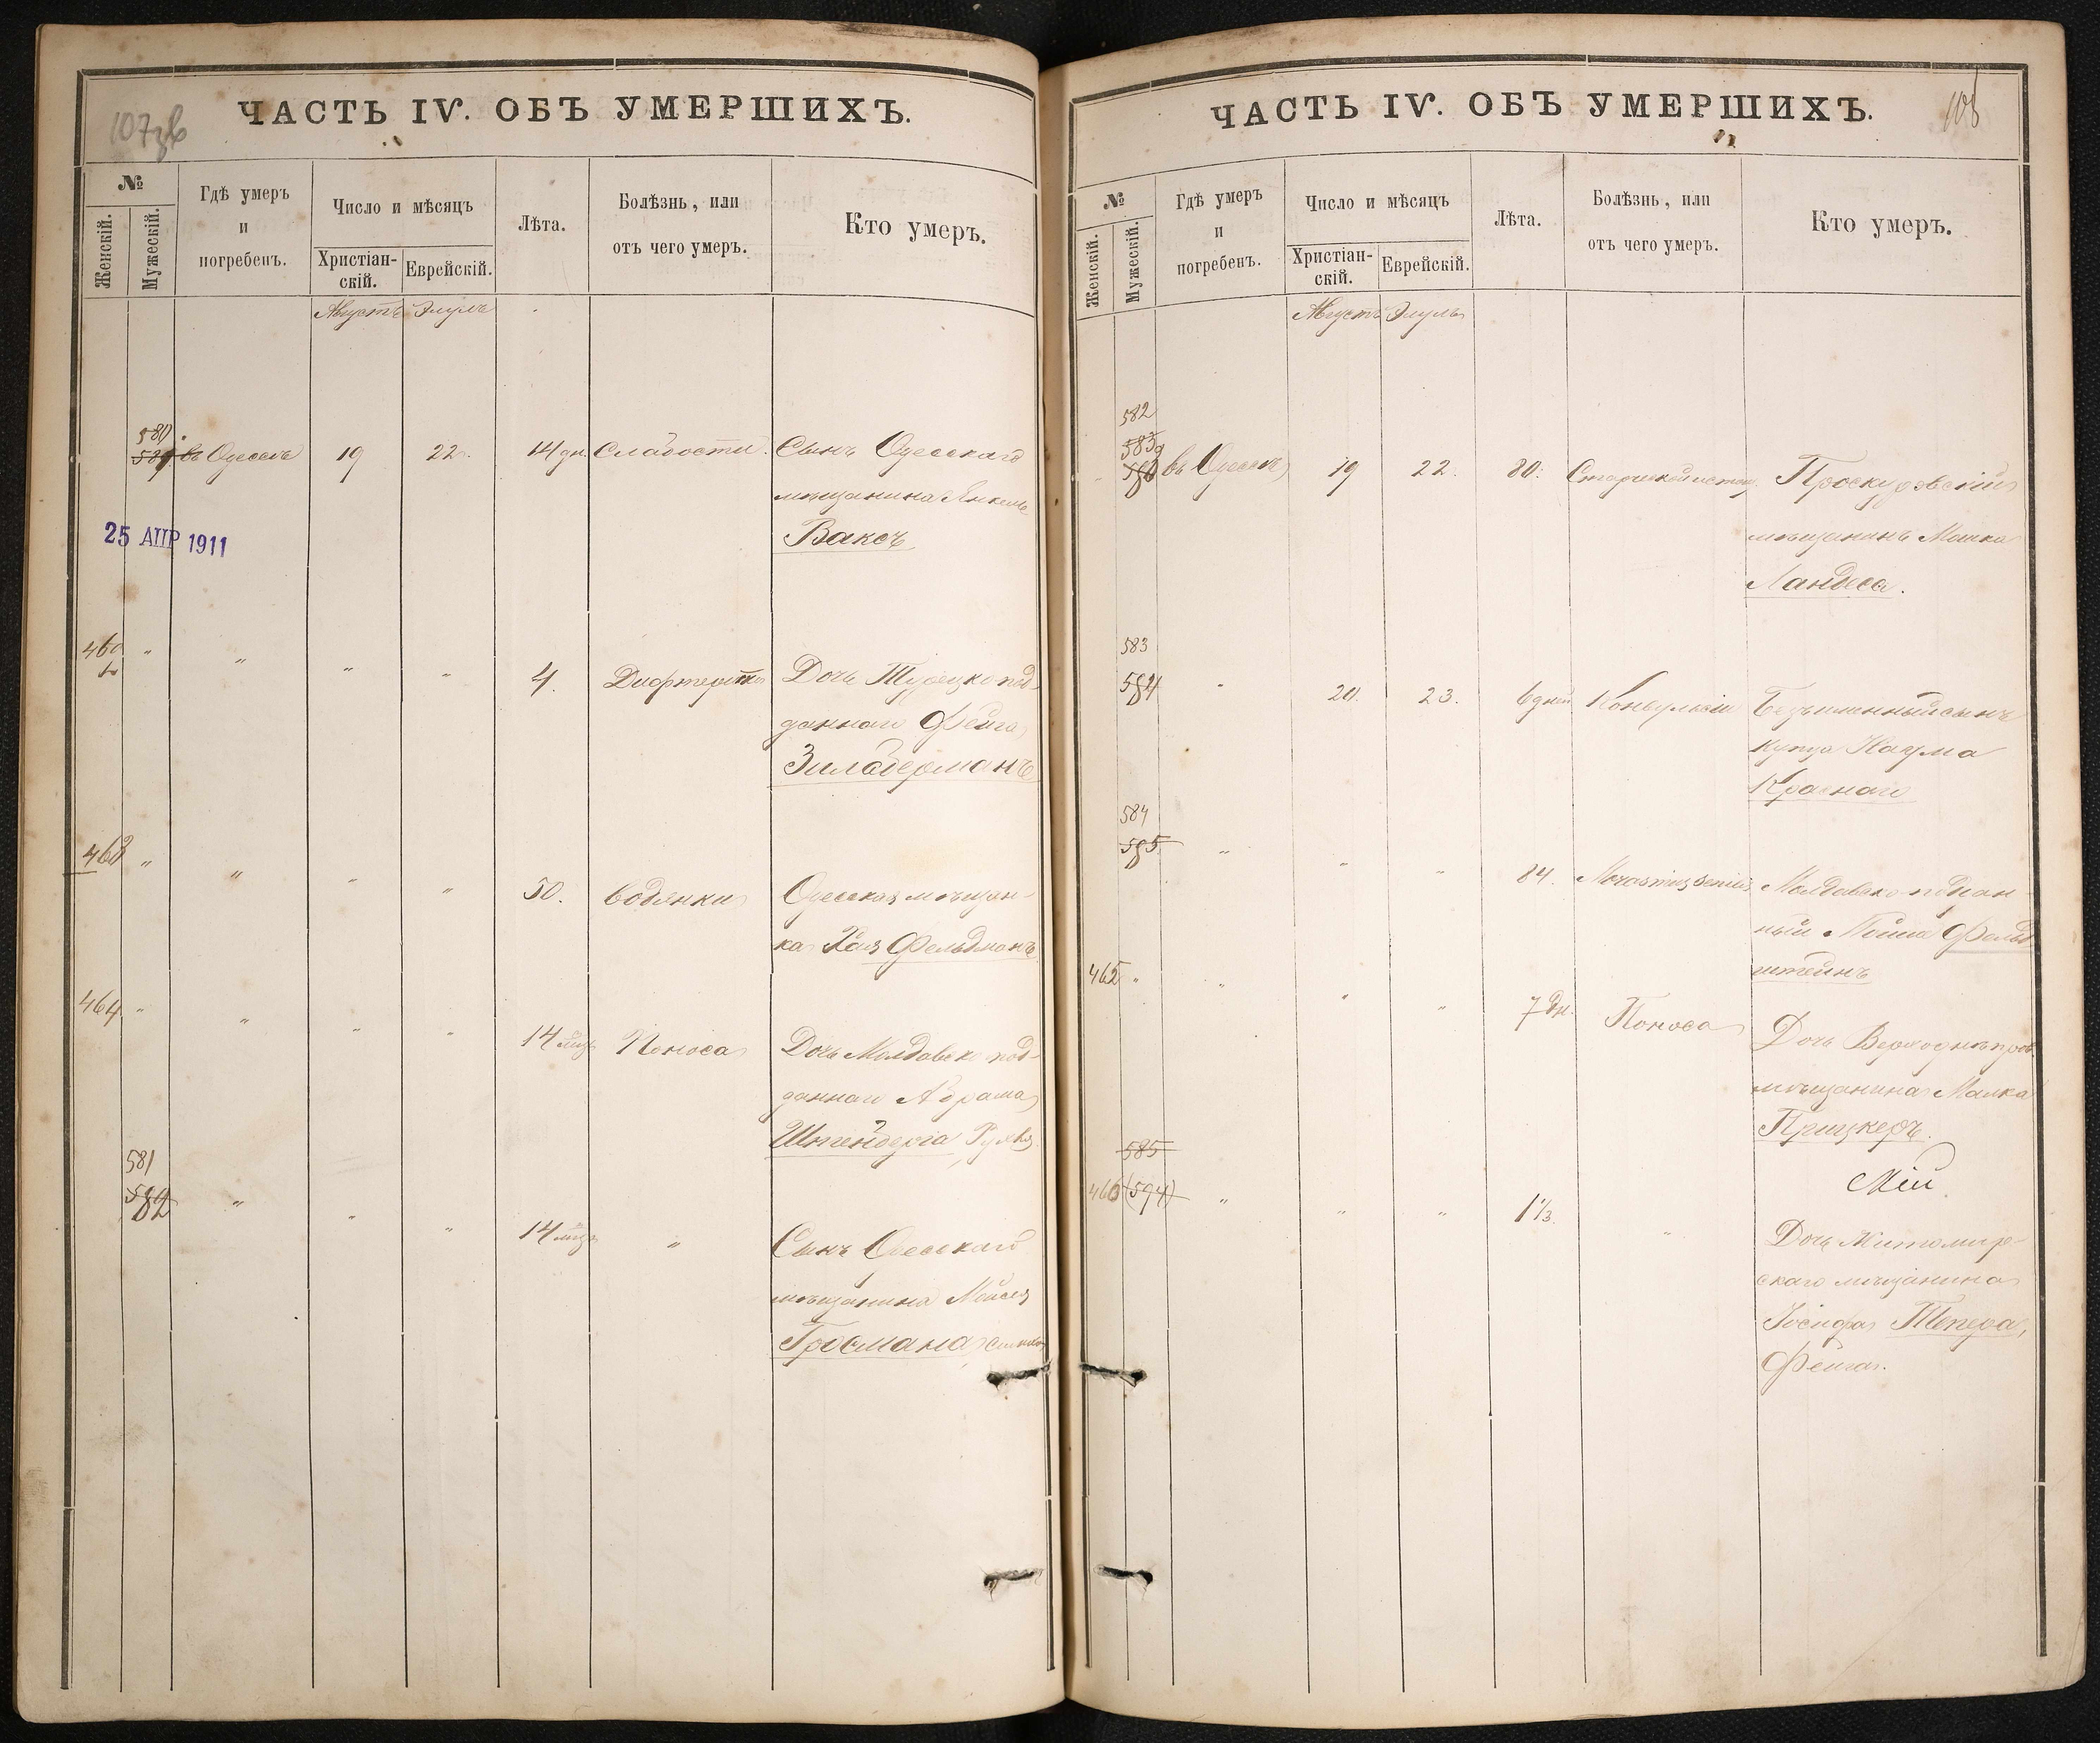 107 об
ЧАСТЬ IV. ОБЪ УМЕРШИХЪ.
№
Женскій.
Мужескій.
Гдѣ умеръ
и
погребенъ.
Число и мѣсяцъ
Христіан-
скій.
Еврейскій.
Лѣта.
Болѣзнь, или
отъ чего умеръ.
Кто умеръ.
Августъ Элулъ
580
въ Одессѣ 19 22. 14 дн. Слабости. Сынъ Одесскаго
мѣщанина Янкель
Ваксъ
25 АПР 1911
" " " " 4. Дифтерита Дочь Турецко под-
даннаго Фейга
Зильберманъ
463 " " " " 50. Водянки Одесская мѣщан-
ка Хая Фельдманъ
464 " " " " 14 мѣс. Поноса Дочь Молдавско под-
даннаго Абрама
Штейнберга
581
582 " " " 14 мѣс. " Сынъ Одесскаго
мѣщанина Мойсея
Гросмана
108
ЧАСТЬ IV. ОБЪ УМЕРШИХЪ.
№
Женскій.
Мужескій.
Гдѣ умеръ
и
погребенъ.
Число и мѣсяцъ
Христіан-
скій.
Еврейскій.
Лѣта.
Болѣзнь, или
отъ чего умеръ.
Кто умеръ.
Августъ Элулъ
582
583
въ Одессѣ 19 22. 80. Проскуровскій
мѣщанинъ Мошко
Ландеса.
583
584 " 20. 23. 6 дней Конвульсіи Безъименный сынъ
купца Наума
Краснаго
584
585 " " " 84. Marasmus senilis Молдавско поддан-
ный Мойше Фельд-
штейнъ
465 " " " " 7 дн. Поноса Дочь Верходнѣпров.
мѣщанина Малка
Прицкеръ.
585
466 (594) " " " 1 1/3. " Дочь Житомир-
скаго мѣщанина
Іосифа Тепера,
Фейга.